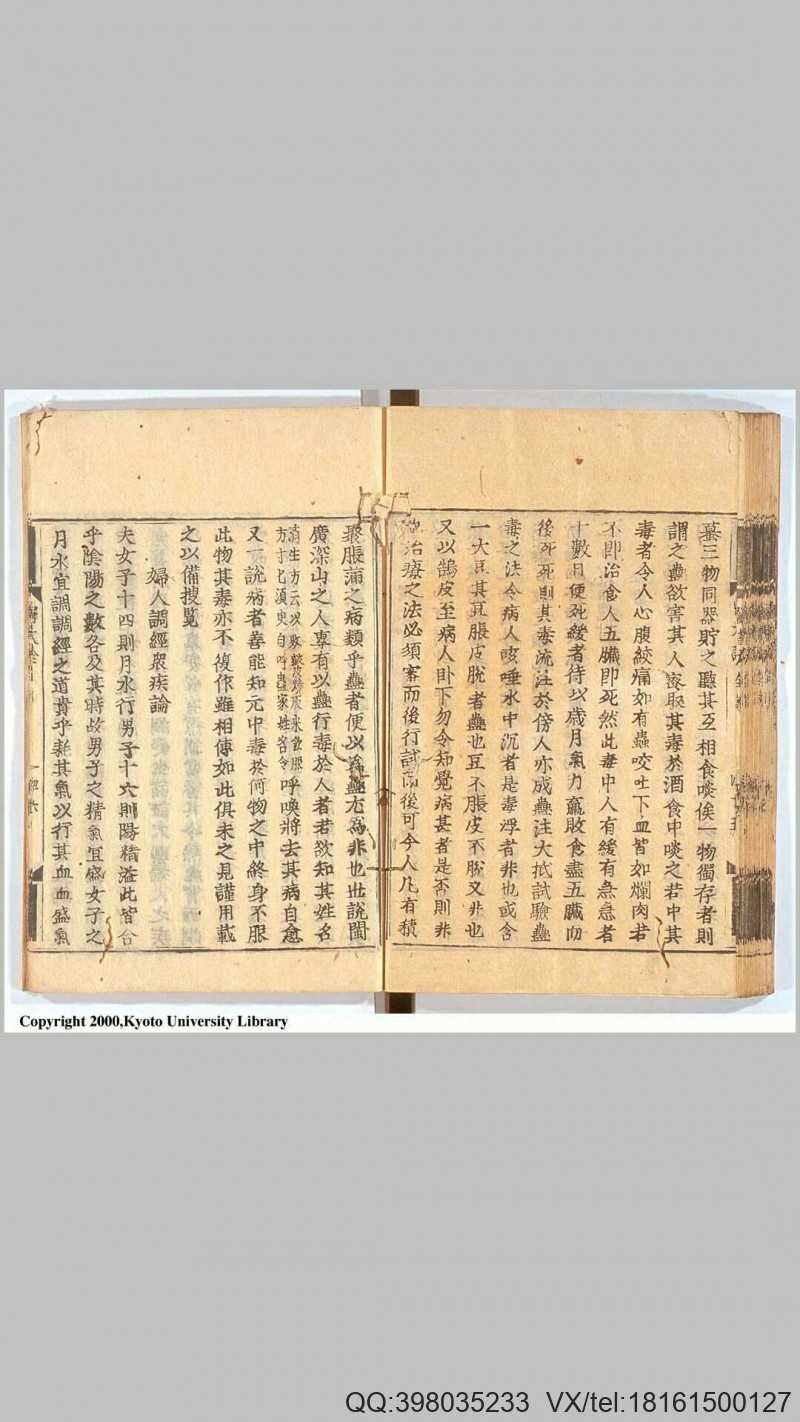 蟇三物同器貯之聽其互相食啖俟一物獨存者則
謂之蠱欲害其人密取其毒於酒食中啖之若中其
毒者令人心腹絞痛如有蟲咬吐下血皆如爛肉若
不即治食人五臟即死然此毒中人有緩有急急者
十數日便死緩者待以歲月氣力羸敗食盡五臟而
後死死則其毒流注於傍人亦成蠱注大抵試驗蠱
毒之法令病人咳唾水中沉者是毒浮者非也或含
一大豆其豆脹皮脫者蠱也豆不脹皮不脫又非也
又以鵠皮至病人卧下勿令知覺病甚者是否則非
治療之法必須審而後行試而後可令人凡有積
聚脹滿之病類乎蠱者便以為蠱尤為非也世說閩
廣深山之人專有以蠱行毒於人者若欲知其姓名
濟生方云以敗鼓皮燒灰米飲服
方寸匕須臾自呼蠱家姓名令
呼喚將去其病自愈
又一說病者善能知元中毒於何物之中終身不服
此物其毒亦不復作雖相傳如此俱未之見謹用載
之以備搜覧
婦人調經衆疾論
夫女子十四則月水行男子十六則陽精溢此皆合
乎陰陽之數各及其時故男子之精氣宜盛女子之
月水宜調調經之道貴乎耗其氣以行其血血盛氣
Copyright 2000,Kyoto University Library
QQ:398035233 VX/tel:18161500127